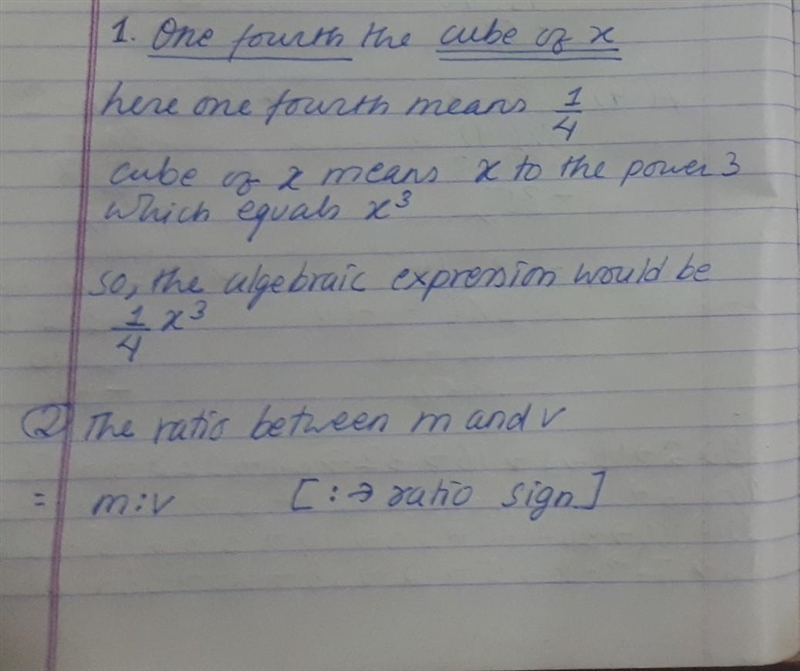 1. One fourth the cube of x
here one fourth means 1/4
cube of x means x to the power 3
which equals x³
so, the algebraic expression would be
1/4 x³
② The ratio between m and v
= m:v [: → ratio sign]